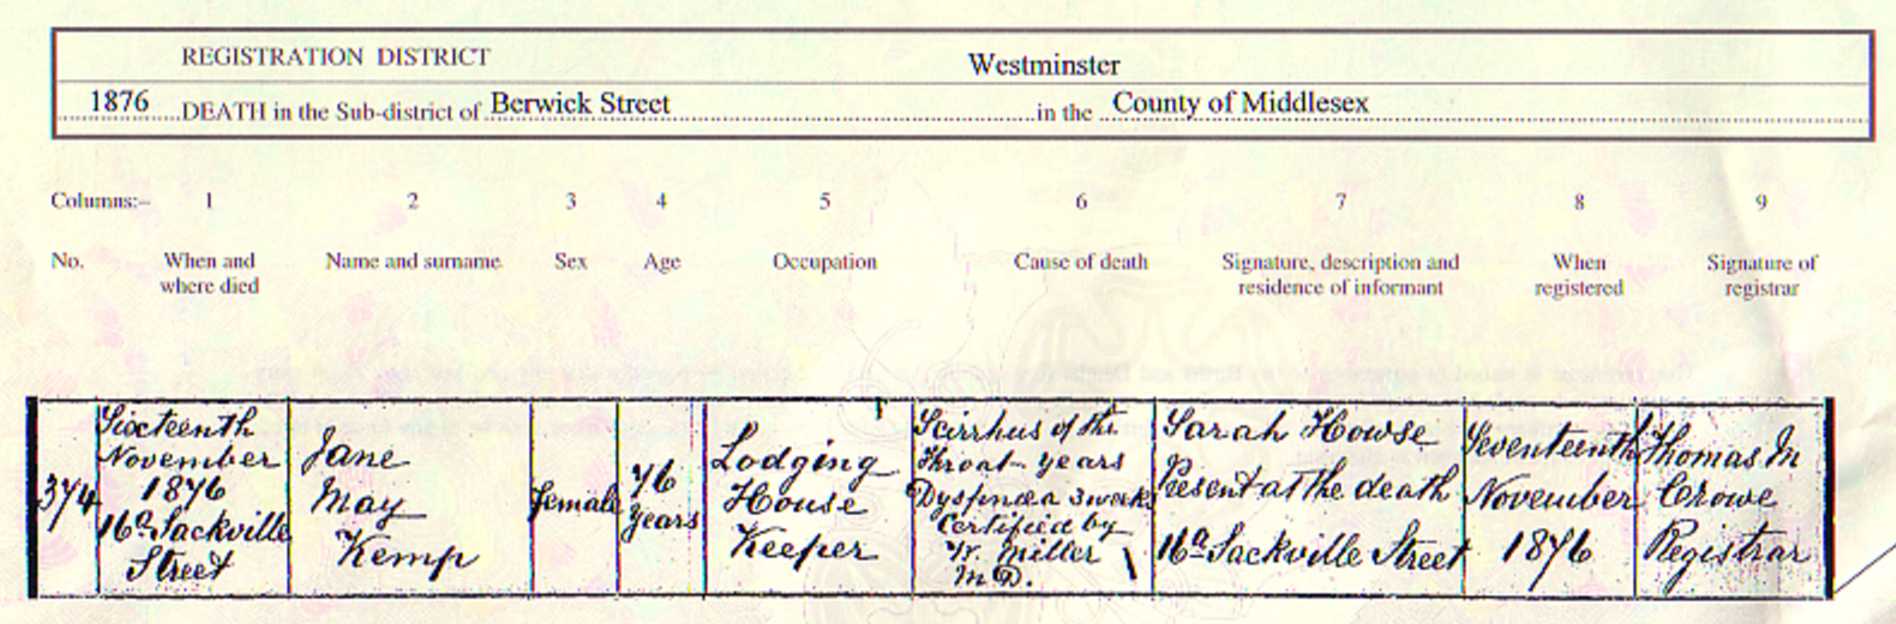 REGISTRATION DISTRICT Westminster
1876 DEATH in the Sub-district of Berwick Street in the County of Middlesex
Columns:– 1 2 3 4 5 6 7 8 9
No. When and where died Name and surname Sex Age Occupation Cause of death Signature, description and residence of informant When registered Signature of registrar
374
Sixteenth
November
1876
16a Sackville
Street
Jane
May
Kemp
Female
76
years
Lodging
House
Keeper
Scirrhus of the
Throat years
Dyspnoea 3 weeks
Certified by
W. Miller
M.D.
Sarah Howse
Present at the death
16a Sackville Street
Seventeenth
November
1876
Thomas M
Crowe
Registrar